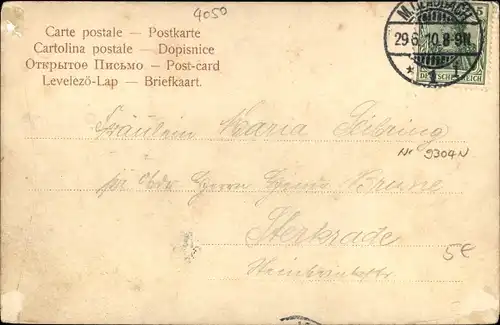 4050
Carte postale — Postkarte
Cartolina postale — Dopisnice
Открытое Письмо — Post-card
Levelező-Lap — Briefkaart.
M.GLADBACH
29.6.10.8-9N.
5
DEUTSCHES REICH
Fräulein Maria
Nr 9304N
Herrn Brune
Sterkrade
5€